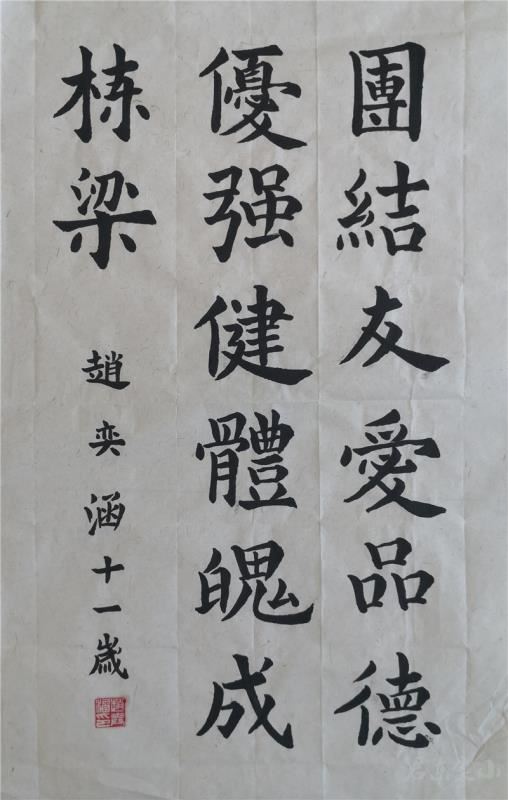 團結友愛品德
優强健體魄成
栋梁
趙奕涵十一歲